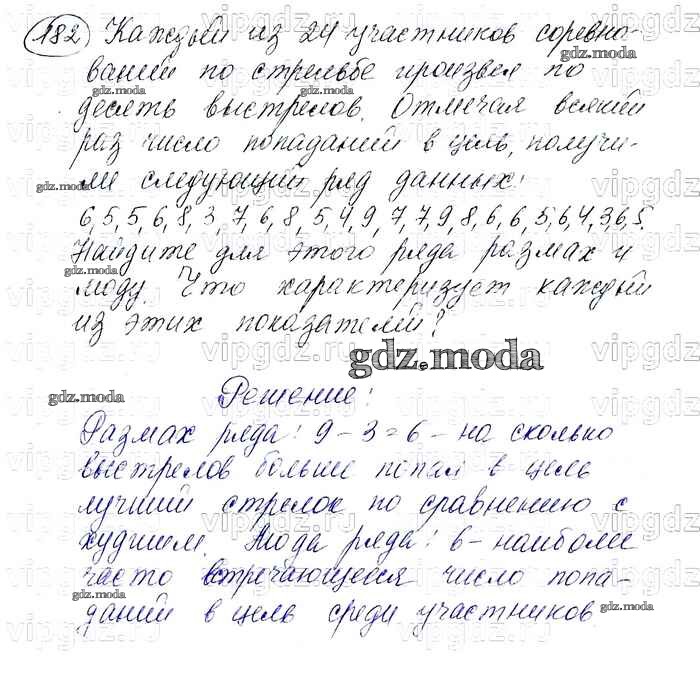 182 Каждый из 24 участников соревно-
ваний по стрельбе произвел по
десять выстрелов. Отмечая всякий
раз число попаданий в цель, получи-
ли следующий ряд данных:
6,5,5,6,8,3,7,6,8,5,4,9,7,7,9,8,6,6,5,6,4,3,6,5.
Найдите для этого ряда размах и
моду. Что характеризует каждый
из этих показателей?
gdz.moda
Решение:
Размах ряда: 9 - 3 = 6 - на сколько
выстрелов больше попал в цель
лучший стрелок по сравнению с
худшим. Мода ряда: 6 - наиболее
часто встречающееся число попа-
даний в цель среди участников.